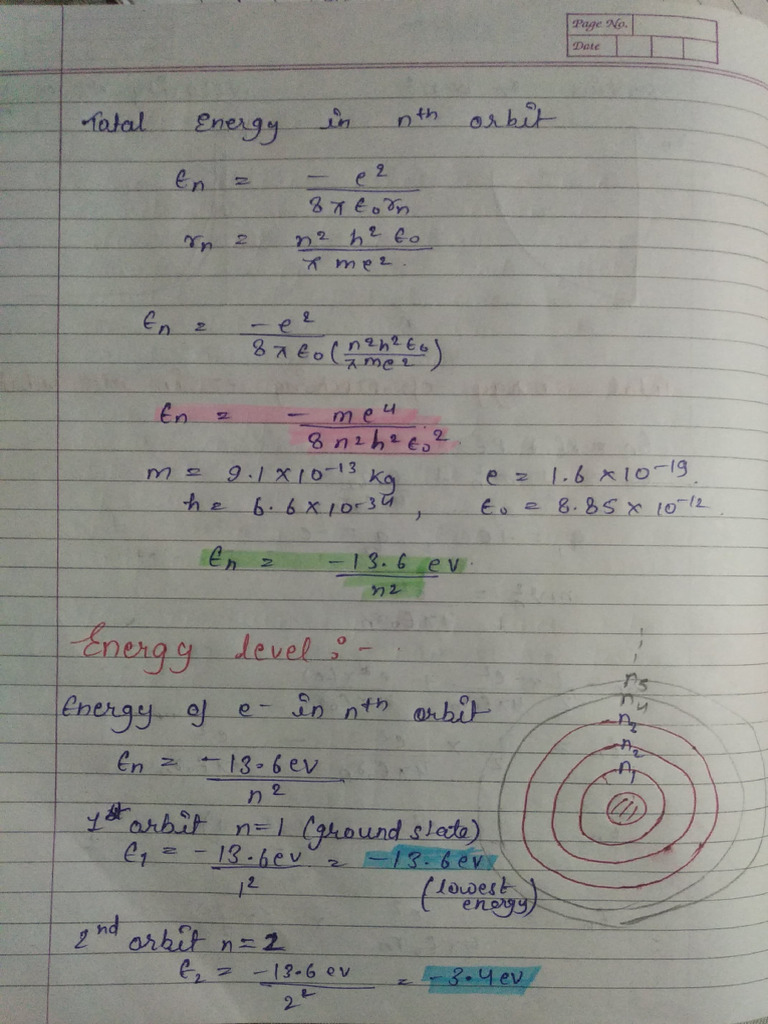 Page No.
Date
Total Energy in nth orbit
En = - e² / 8πε₀rn
rn = n² h² ε₀ / πme².
En = -e² / 8πε₀(n²h²ε₀ / πme²)
En = - me⁴ / 8n²h²ε₀².
m = 9.1×10⁻¹³ kg e = 1.6×10⁻¹⁹.
h = 6.6×10⁻³⁴, ε₀ = 8.85×10⁻¹².
En = -13.6 ev / n².
Energy level :-
Energy of e- in nth orbit
En = -13.6ev / n²
1st orbit n=1 (ground state)
E₁ = -13.6ev / 1² = -13.6ev
(lowest energy)
2nd orbit n=2
E₂ = -13.6 ev / 2² = -3.4ev
n5
n4
n2
n2
n1